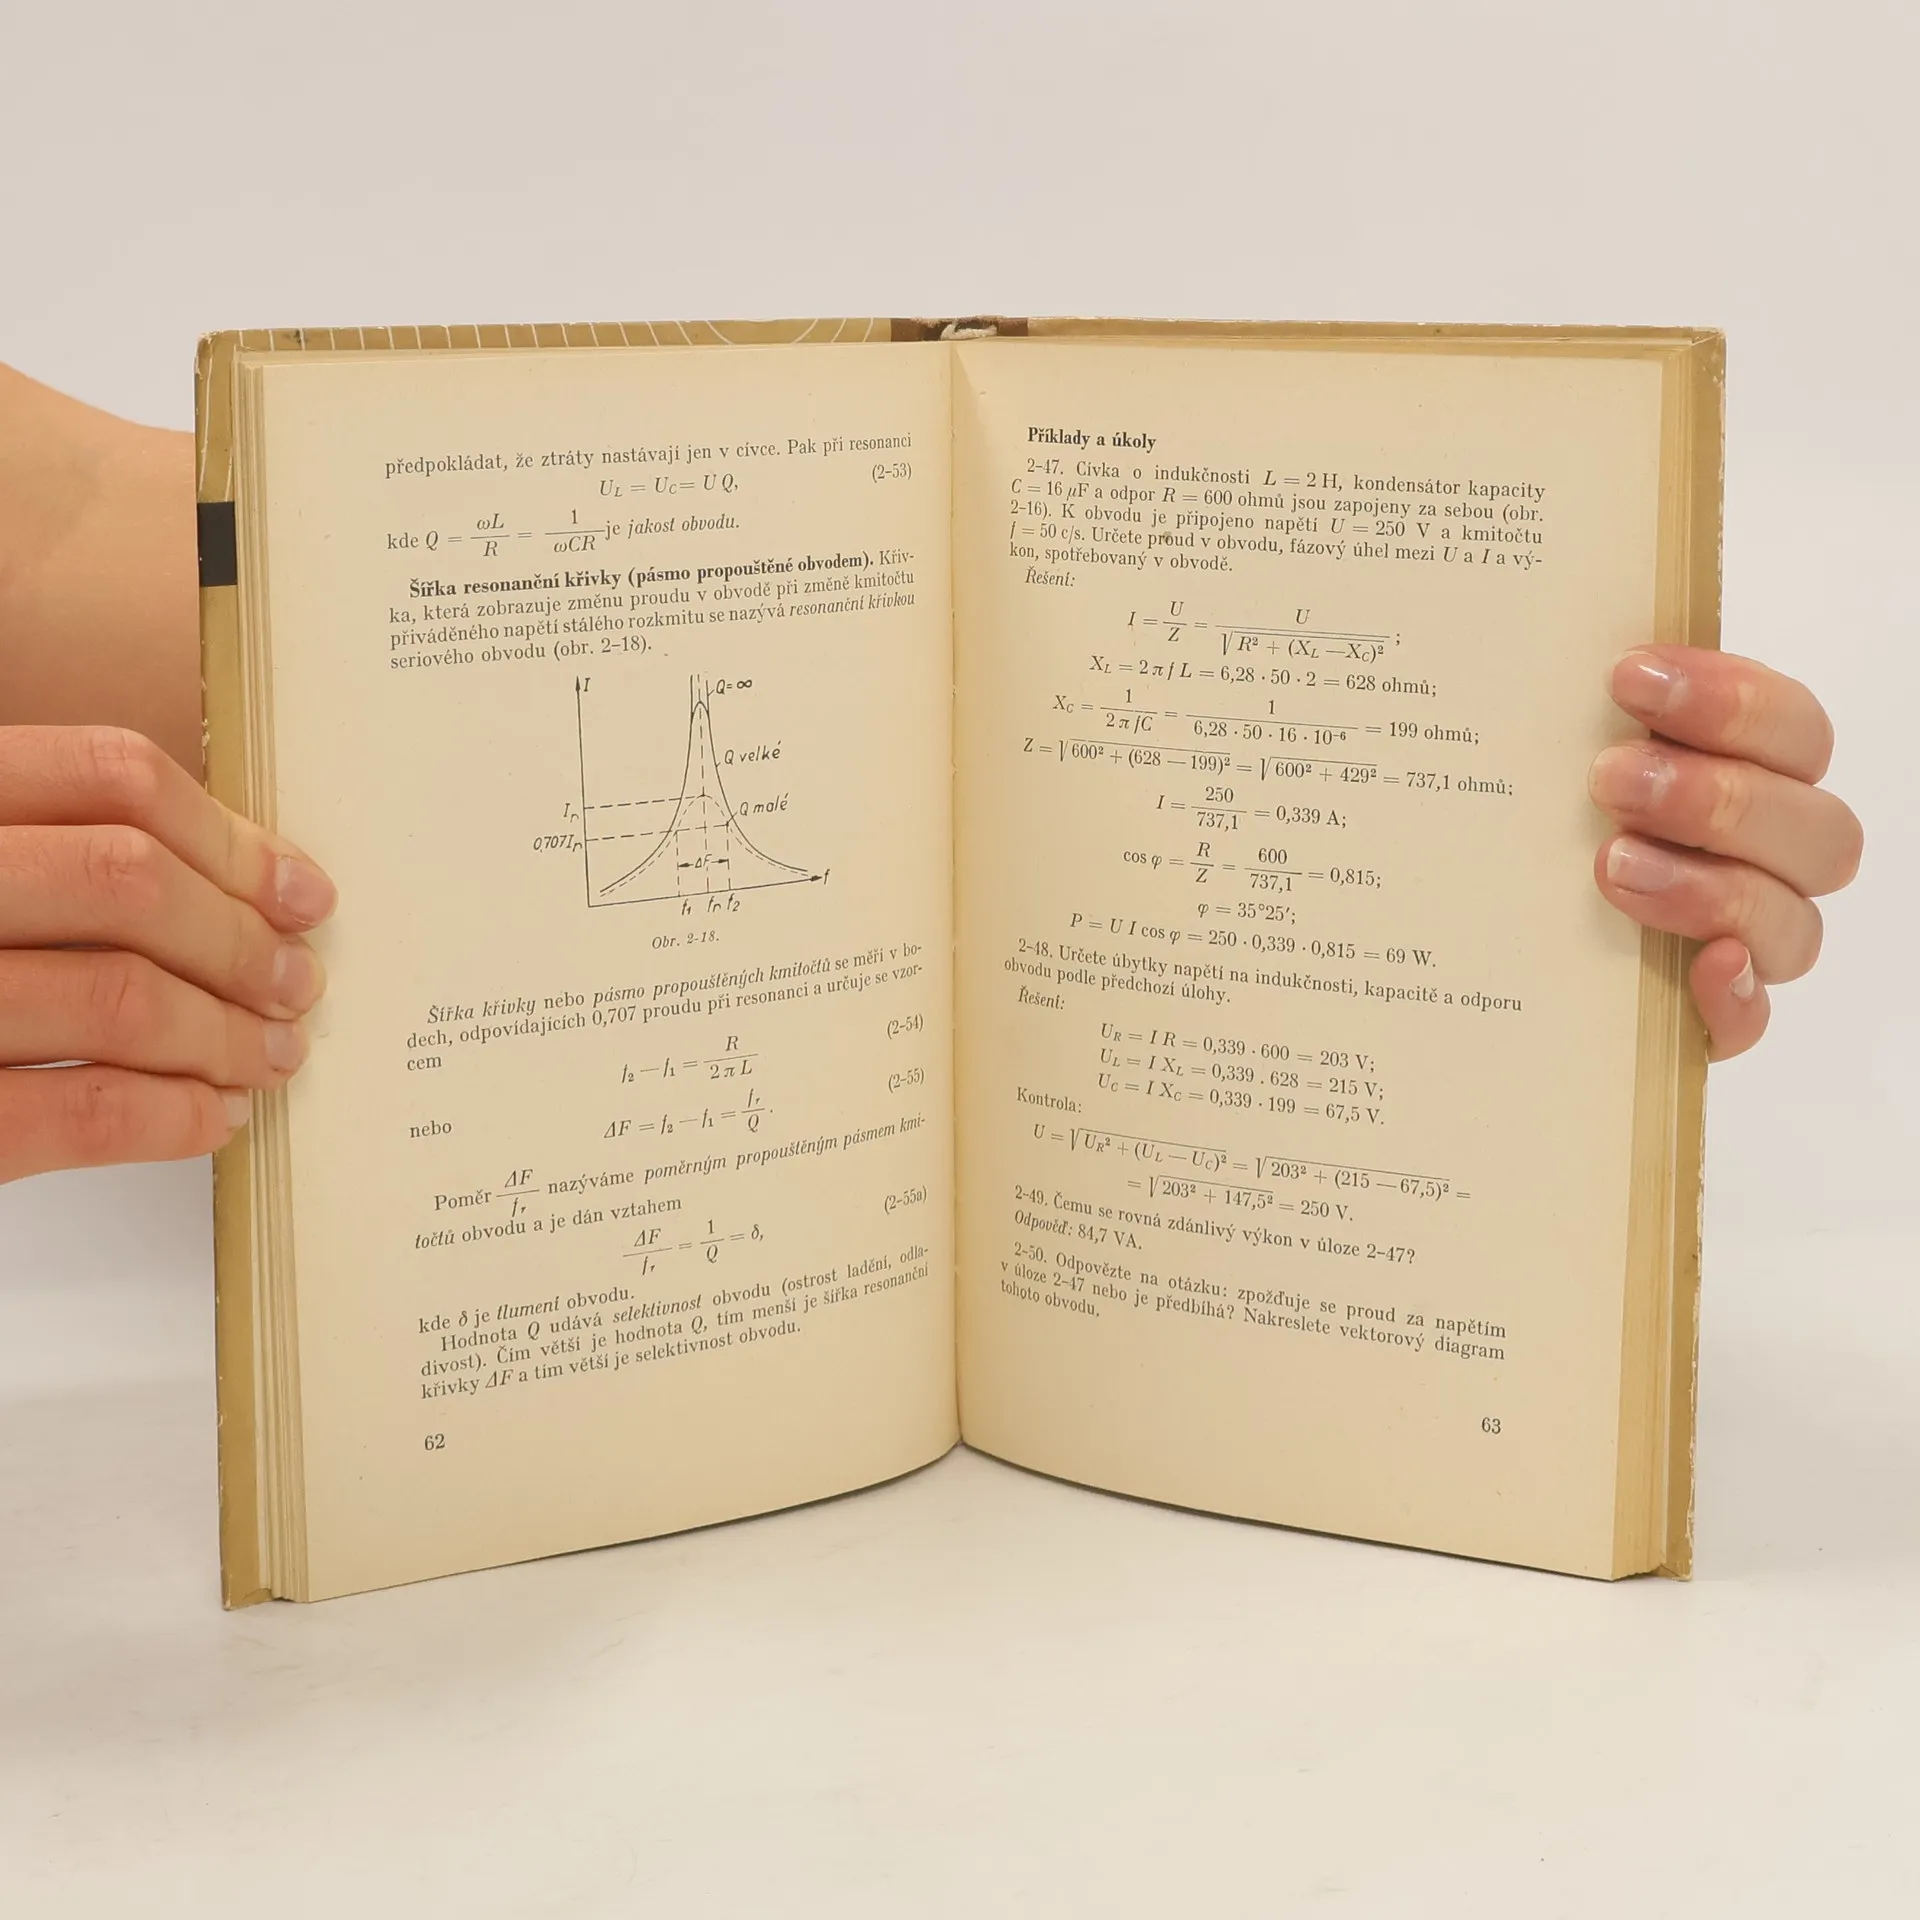 předpokládat, že ztráty nastávají jen v cívce. Pak při resonanci
U_L = U_C = U Q, (2-53)
kde Q = ωL/R = 1/ωCR je jakost obvodu.
Šířka resonanční křivky (pásmo propouštěné obvodem). Křiv-
ka, která zobrazuje změnu proudu v obvodě při změně kmitočtu
přiváděného napětí stálého rozkmitu se nazývá resonanční křivkou
seriového obvodu (obr. 2-18).
I
Q=∞
Q velké
Q malé
I_r
0,707I_r
ΔF
f
f₁ f_r f₂
Obr. 2-18.
Šířka křivky nebo pásmo propouštěných kmitočtů se měří v bo-
dech, odpovídajících 0,707 proudu při resonanci a určuje se vzor-
cem
f₂ — f₁ = R/2 π L (2-54)
nebo
ΔF = f₂ — f₁ = f_r/Q . (2-55)
Poměr ΔF/f_r nazýváme poměrným propouštěným pásmem kmi-
točtů obvodu a je dán vztahem
ΔF/f_r = 1/Q = δ, (2-55a)
kde δ je tlumení obvodu.
Hodnota Q udává selektivnost obvodu (ostrost ladění, odla-
divost). Čím větší je hodnota Q, tím menší je šířka resonanční
křivky ΔF a tím větší je selektivnost obvodu.
62
Příklady a úkoly
2-47. Cívka o indukčnosti L = 2 H, kondensátor kapacity
C = 16 μF a odpor R = 600 ohmů jsou zapojeny za sebou (obr.
2-16). K obvodu je připojeno napětí U = 250 V a kmitočtu
f = 50 c/s. Určete proud v obvodu, fázový úhel mezi U a I a vý-
kon, spotřebovaný v obvodě.
Řešení:
I = U/Z = U/√R² + (X_L — X_C)² ;
X_L = 2 π f L = 6,28 . 50 . 2 = 628 ohmů;
X_C = 1/2 π fC = 1/6,28 . 50 . 16 . 10⁻⁶ = 199 ohmů;
Z = √600² + (628 — 199)² = √600² + 429² = 737,1 ohmů;
I = 250/737,1 = 0,339 A;
cos φ = R/Z = 600/737,1 = 0,815;
φ = 35°25′;
P = U I cos φ = 250 . 0,339 . 0,815 = 69 W.
2-48. Určete úbytky napětí na indukčnosti, kapacitě a odporu
obvodu podle předchozí úlohy.
Řešení:
U_R = I R = 0,339 . 600 = 203 V;
U_L = I X_L = 0,339 . 628 = 215 V;
U_C = I X_C = 0,339 . 199 = 67,5 V.
Kontrola:
U = √U_R² + (U_L — U_C)² = √203² + (215 — 67,5)² =
= √203² + 147,5² = 250 V.
2-49. Čemu se rovná zdánlivý výkon v úloze 2-47?
Odpověď: 84,7 VA.
2-50. Odpovězte na otázku: zpožďuje se proud za napětím
v úloze 2-47 nebo je předbíhá? Nakreslete vektorový diagram
tohoto obvodu,
63